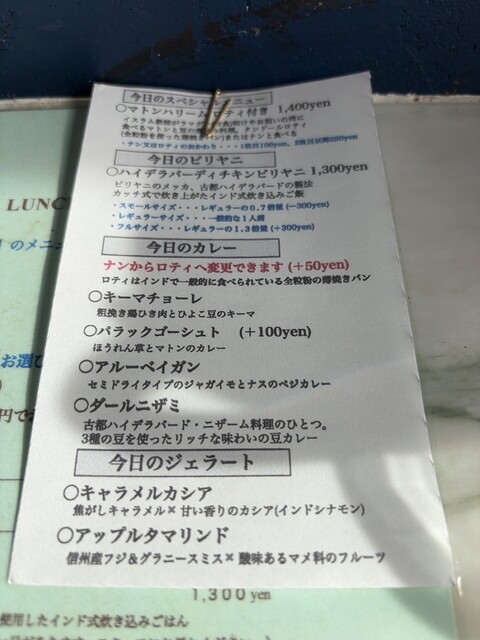 今日のスペシャルメニュー
○マトンハリーム ロティ付き 1,400yen
食べるマトンと豆の
(全粒粉を使った薄焼きパン)またはナンと食べる
・ナン又はロティのおかわり・・・1枚目100yen, 2枚目以降250yen
今日のビリヤニ
○ハイデラバーディチキンビリヤニ 1,300yen
ビリヤニのメッカ、古都ハイデラバードの製法
カッチ式で炊き上がたインド式炊き込みご飯
・スモールサイズ・・・レギュラーの0.7倍量 (−300yen)
・レギュラーサイズ・・・一般的な1人前
・フルサイズ・・・レギュラーの1.3倍量 (+300yen)
今日のカレー
ナンからロティへ変更できます (+50yen)
ロティはインドで一般的に食べられている全粒粉の薄焼きパン
○キーマチョーレ
粗挽き鶏ひき肉とひよこ豆のキーマ
○パラックゴーシュト (+100yen)
ほうれん草とマトンのカレー
○アルーベイガン
セミドライタイプのジャガイモとナスのベジカレー
○ダールニザミ
古都ハイデラバード・ニザーム料理のひとつ。
3種の豆を使ったリッチな味わいの豆カレー
今日のジェラート
○キャラメルカシア
焦がしキャラメル× 甘い香りのカシア(インドシナモン)
○アップルタマリンド
信州産フジ＆グラニースミス× 酸味あるマメ科のフルーツ
LUNC
のメニュ
お選び
円で
1,300 yen
使用したインド式炊き込みごはん